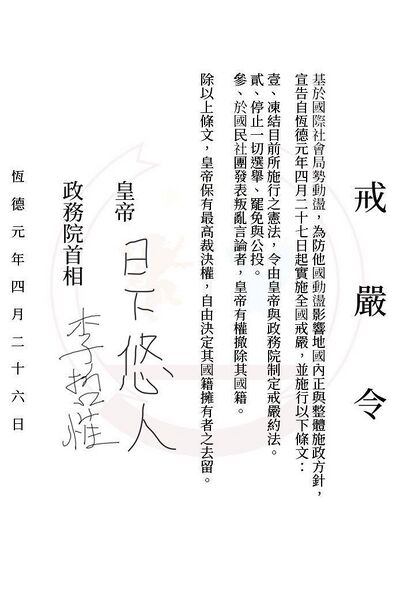 戒嚴令
基於國際社會局勢動盪，為防他國動盪影響地國內正與整體施政方針，
宣告自恆德元年四月二十七日起實施全國戒嚴，並施行以下條文：
壹、凍結目前所施行之憲法，令由皇帝與政務院制定戒嚴約法。
貳、停止一切選舉、罷免與公投。
參、於國民社團發表叛亂言論者，皇帝有權撤除其國籍。
除以上條文，皇帝保有最高裁決權，自由決定其國籍擁有者之去留。
皇帝 日下悠人
政務院首相 李哲惟
恆德元年四月二十六日